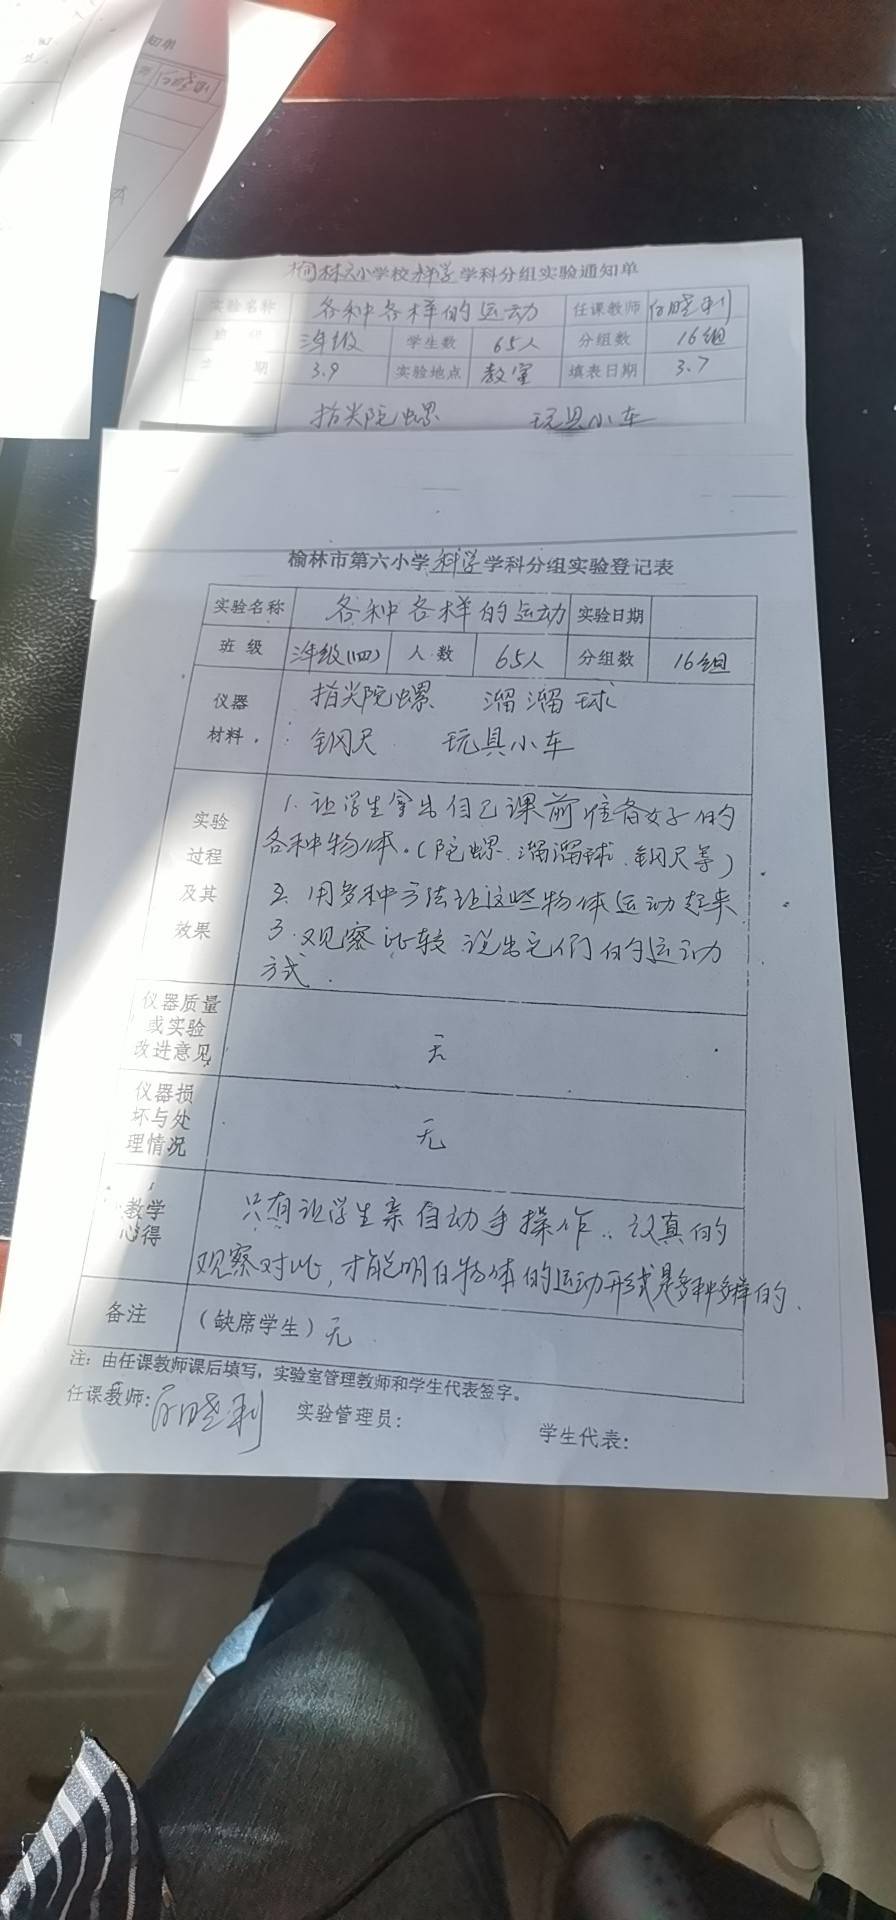 知单
榆林六小学校科学学科分组实验通知单
实验名称 各种各样的运动 任课教师 白晓利
班 级 三年级 学生数 65人 分组数 16组
期 3.9 实验地点 教室 填表日期 3.7
指尖陀螺 玩具小车
榆林市第六小学科学学科分组实验登记表
实验名称 各种各样的运动 实验日期
班 级 三年级(四) 人 数 65人 分组数 16组
仪器 指尖陀螺 溜溜球
材料 钢尺 玩具小车
实验 1. 让学生拿出自己课前准备好的
过程 各种物体。(陀螺、溜溜球、钢尺等)
及其 2. 用多种方法让这些物体运动起来
效果 3. 观察比较说出它们的运动
方式.
仪器质量
或实验
改进意见 无
仪器损
坏与处
理情况 无
教学 只有让学生亲自动手操作..认真的
心得 观察对比,才能明白物体的运动形式是多种多样的.
备注 (缺席学生)无
注:由任课教师课后填写,实验室管理教师和学生代表签字。
任课教师:白晓利 实验管理员: 学生代表: